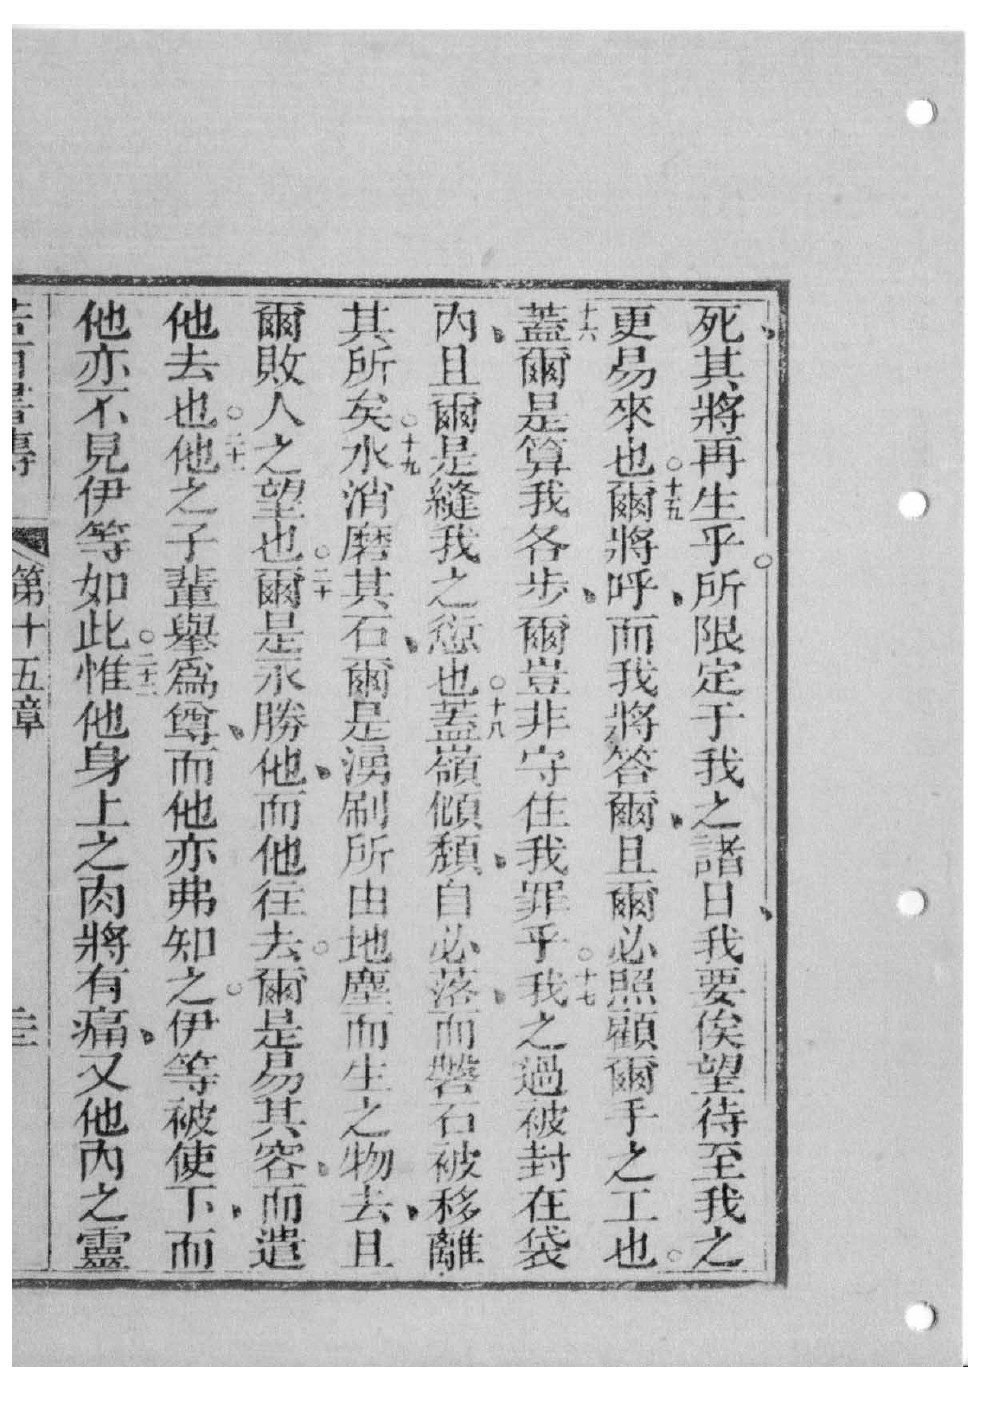 死其將再生乎。所限定于我之諸日、我要俟望待至我之
更易來也。十五爾將呼、而我將答爾、且爾必照顧爾手之工也。
十六蓋爾是算我各步、爾豈非守住我罪乎。十七我之過被封在袋
內、且爾是縫我之愆也。十八蓋嶺傾頹、自必落、而磐石被移離
其所矣。十九水消磨其石、爾是湧刷所由地塵而生之物去、且
爾敗人之望也。二十爾是永勝他、而他往去。爾是易其容、而遣
他去也。二十一他之子輩舉為尊、而他亦弗知之。伊等被使下、而
他亦不見伊等如此。二十二惟他身上之肉將有痛、又他內之靈
書傳 第十五章